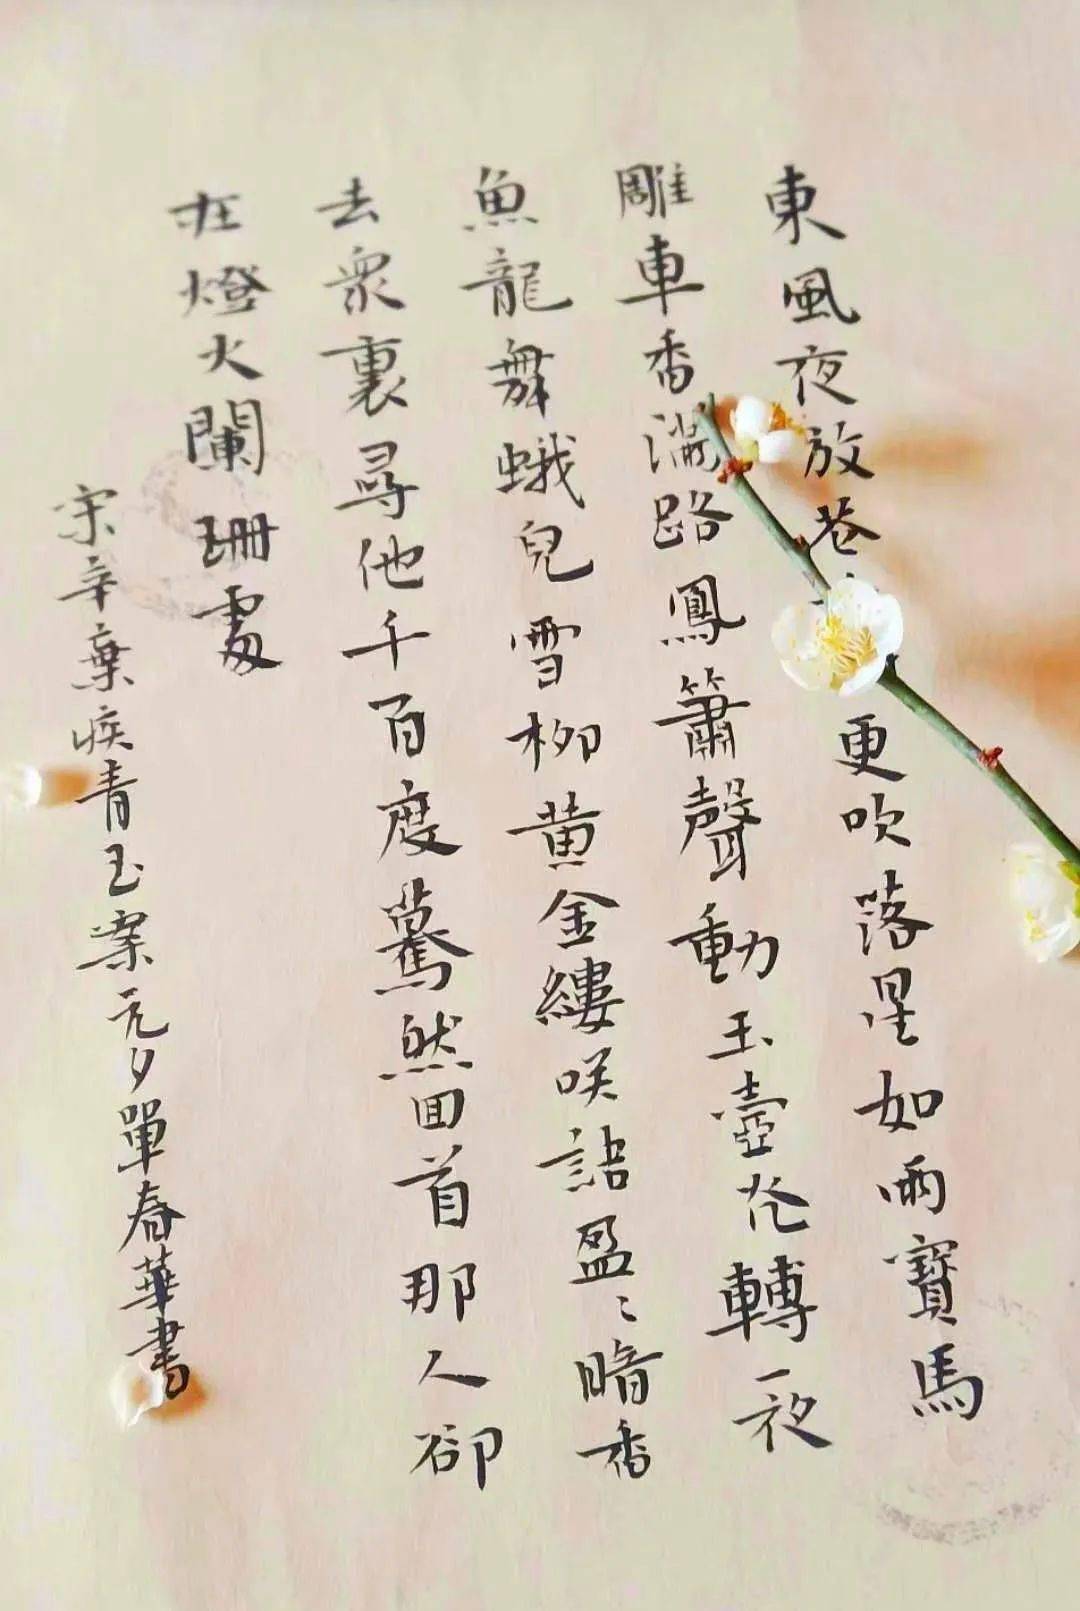 東風夜放花更吹落星如雨寶馬
雕車香滿路鳳簫聲動玉壺光轉一夜
魚龍舞蛾兒雪柳黃金縷咲語盈〻暗香
去衆裏尋他千百度驀然回首那人卻
在燈火闌珊處
宋辛棄疾青玉案元夕單春華書